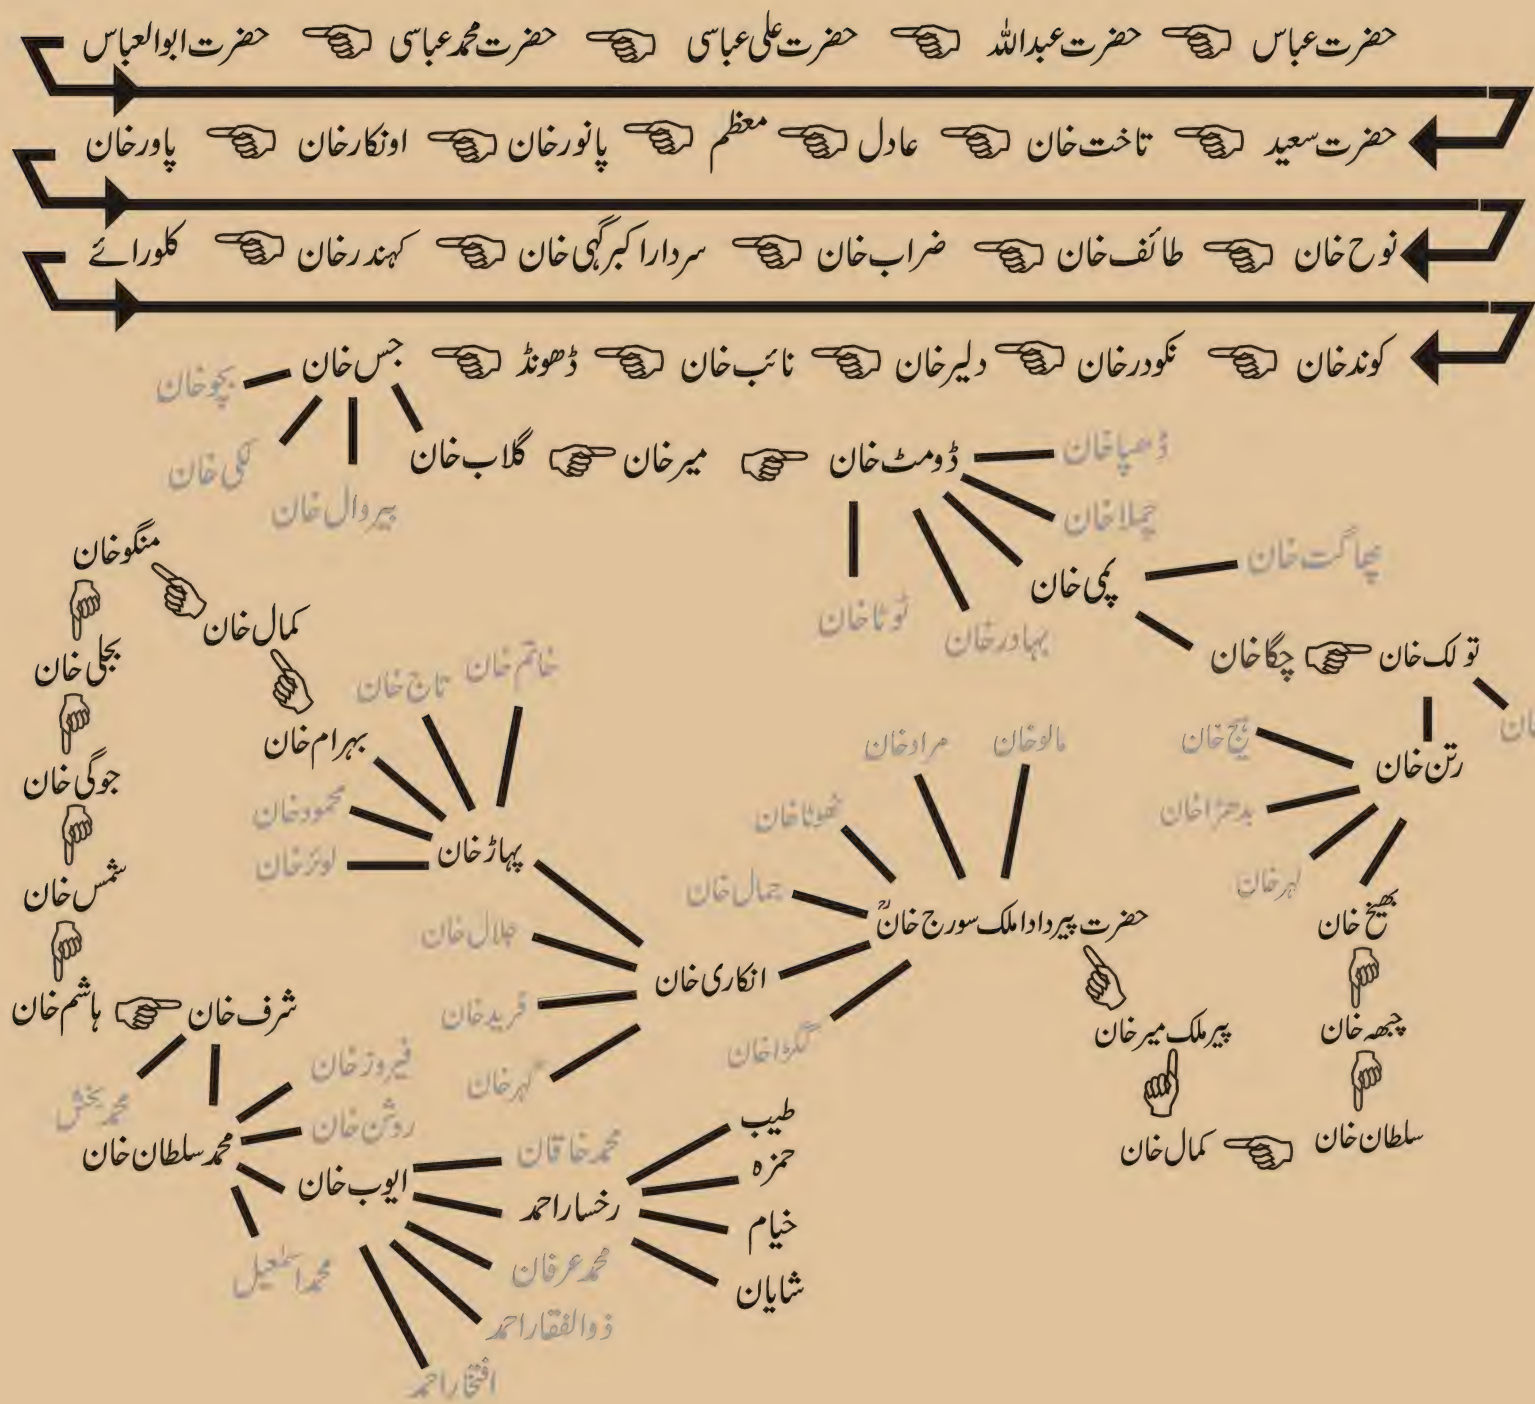 حضرت عباس حضرت عبداللہ حضرت علی عباسی حضرت محمد عباسی حضرت ابوالعباس
حضرت سعید تاخت خان عادل معظم پانور خان اونکار خان پاور خان
نوح خان طائف خان ضراب خان سردار اکبر گہی خان کہندر خان کلورائے
کوند خان نکودر خان دلیر خان نائب خان ڈھونڈ جس خان
بچو خان
لکی خان
بیروال خان
گلاب خان میر خان ڈومٹ خان
ڈھپا خان
چملا خان
ٹوٹا خان
بہادر خان
پمی خان
پھاگت خان
چگا خان تولک خان
رتن خان
ہیج خان
بدھڑا خان
لہر خان
بھیخ خان
جبھہ خان
سلطان خان
کمال خان
پیر ملک میر خان
حضرت پیر دادا ملک سورج خانؒ
مالو خان
مراد خان
تھوٹا خان
جمال خان
انکاری خان
گکڑا خان
پہاڑ خان
جلال خان
فرید خان
گہر خان
خاتم خان
تاج خان
بہرام خان
محمود خان
لوئز خان
کمال خان
منگو خان
بجلی خان
جوگی خان
شمس خان
ہاشم خان شرف خان
محمد بخش
محمد سلطان خان
فیروز خان
روشن خان
ایوب خان
محمد اسمٰعیل
محمد خاقان
رخسار احمد
محمد عرفان
ذوالفقار احمد
افتخار احمد
طیب
حمزہ
خیام
شایان